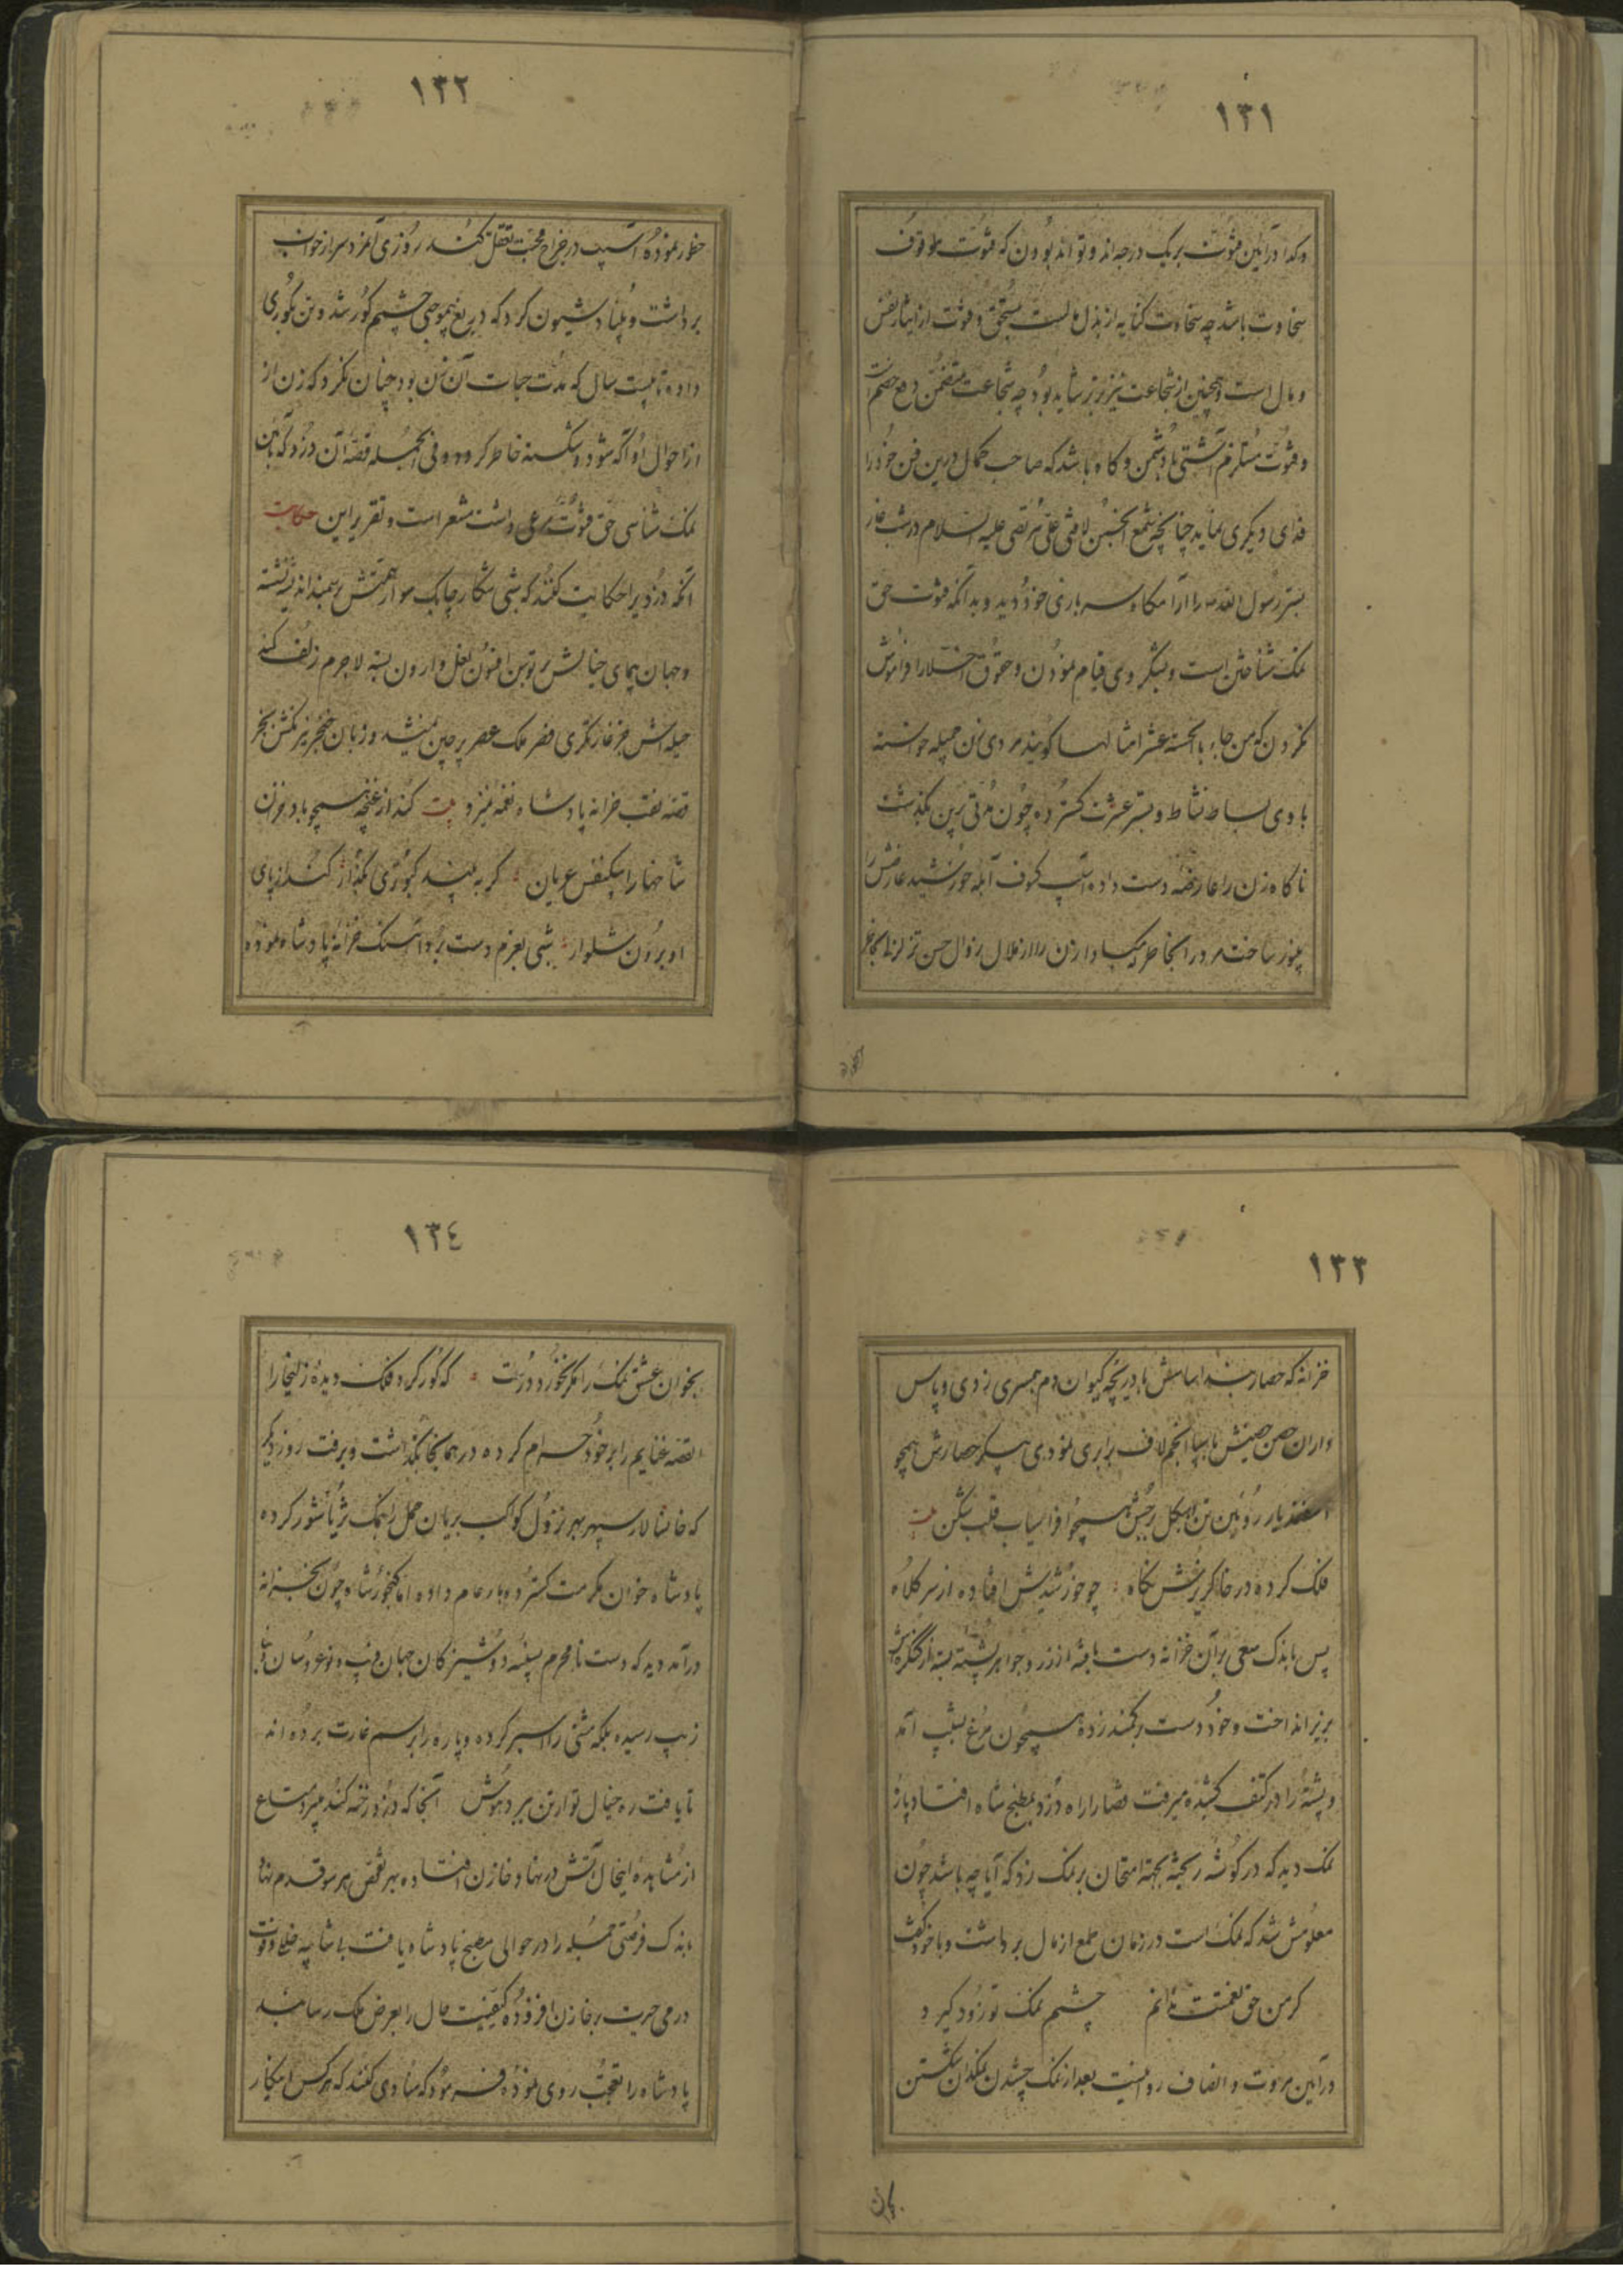 ١٣١
و گدا در آیین فتوت بر یک درجه‌اند و تواند بودن که فتوت موقوف
سخاوت باشد چه سخاوت کنایه از بذل است بمستحق و فتوت از ایثار نفس
و مال است و همچنین از شجاعت نیز برتر شاید بود چه شجاعت متضمن دفع خصم است
و فتوت مستلزم آشتی با دشمن و گاه باشد که صاحب کمال درین فن خود را
فدای دیگری نماید چنانچه شمع انجمن لافتی علی مرتضی علیه السلام در شب غار
بستر رسول الله را آرامگاه سربازی خود دید و بدانکه فتوت حق
نمک شناختن است و بشکر وی قیام نمودن و حقوق اخلا را فراموش
نکردن که من جاء بالحسنة عشر امثالها گویند مردی زن جمیله خواسته
با وی بساط نشاط و بستر عشرت گسترده چون مدتی برین بگذشت
ناگاه زن را عارضه دست داده آسیب کسوف آبله خورشید عارضش را
ساخت مرد را بخاطر که مبادا زن را از ملال زوال حسن تزلزل بخاطر
١٣٢
خطور نموده آسیب در مزاج محبت تعقل کند روزی آن مرد سر از خواب
برداشت و بنیاد شیون کرد که دریغ چشمم کور شد و تن بکوری
داده تا بیست سال که مدت حیات آن زن بود چنان نکرد که زن از
از احوال او آگه شود و شکسته خاطر گردد و فی الجمله قصه آن دزد که بآیین
نمک شناسی حق فتوت مرعی داشت مشعر است و تقریر این حکایت
آنکه دزدی را حکایت کنند که شبی شکار چابک سوار همتش سمند اندیشه
و جهان پیمای خیالش بر توسن افسون نعل وارون بسته لاجرم زلف کمند
حیله اش جز غارتگری قصر ملک عصر پر چین نمیشد و زبان خنجر تیز کنش بجز
قصه نقب خزانه پادشاه نغمه نمیزد بیت کند از غنچه همچو باد خزان
شاخها را بیکنفس عریان گر به بیند کبوتری بگذار کند از پای
او برون شلوار شبی بعزم دست برد آهنک خزانه پادشاه نموده
١٣٣
خزانه که حصار بند اساسش با دریچه کیوان دم همسری زدی و پاس
داران حصن حصینش با سپاه انجم لاف برابری نمودی پیکر حصارش همچو
اسفندیار رویین تن و هیکل برجش همچو افراسیاب قلب شکن بیت
فلک کرده در خاکریزش نگاه چو خورشیدش افتاده از سر کلاه
پس باندک سعی بر آن خزانه دست یافته از زر و جواهر پشته بسته از کنگره اش
بزیر انداخت و خود دست بر کمند زده همچون مرغ بشیب آمد
و پشته را در کتف کشیده میرفت قضا را راه دزد بمطبخ شاه افتاد پاره
نمک دید که در گوشه ریخته بجهة امتحان بر نمک زد که آیا چه باشد چون
معلومش شد که نمک است در زمان طمع از مال برداشت و با خود گفت
گر من حق نعمتت ندانم چشمم نمک تو زود گیرد
در آیین مروت و انصاف روا نیست بعد از نمک چشیدن نمکدان شکستن
١٣٤
بخوان عشق نمک را مگر نخورد درست که کور کرد فلک دیده زلیخا را
القصه غنایم را بر خود حرام کرده در همانجا بگذاشت و برفت روز دیگر
که خانسالار سپهر بهر نزول کواکب بریان حمل را بنمک ثریا شور کرده
پادشاه خوان مکرمت گسترده و بار عام داده اما گنجور شاه چون بخزانه
درآمد دید که دست نامحرم بسینه دوشیزگان جهان و نوعروسان
زیب رسیده بلکه مشتی را اسیر کرده و پاره را برسم غارت برده اند
تا یافت ره خیال تو از تن ببرد هوش آنجا که دزد رخنه کند میبرد متاع
از مشاهده اینحال آتش در نهاد خازن افتاده بهر تفحص بهر سو قدم نهاد
باندک فرصتی جمله را در حوالی مطبخ پادشاه یافت بی شایبه خلاف
درمی حیرت بر خازن افزوده کیفیت حال را بعرض ملک رسانید
پادشاه را تعجب روی نموده فرمود که منادی کنند که هر کس اینکار